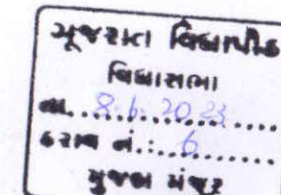 ગૂજરાત વિદ્યાપીઠ
વિદ્યાસભા
તા. 8.6.2023
ઠરાવ નં.: 6
મુજબ મંજૂર